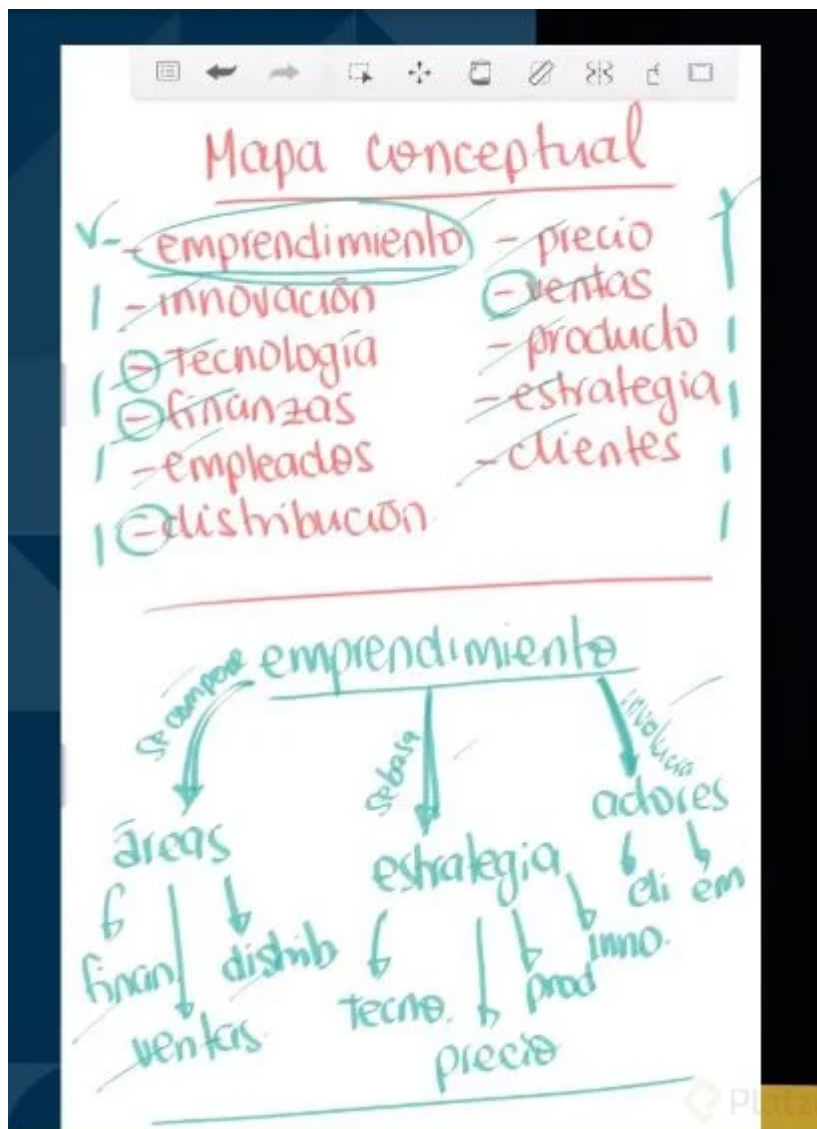 Mapa conceptual
- emprendimiento
- innovación
- Tecnología
- finanzas
- empleados
- distribución
- precio
- ventas
- producto
- estrategia
- clientes
emprendimiento
se compone
se basa
involucra
áreas
estrategia
actores
finan.
ventas
distrib
Tecno.
precio
prod
inno.
cli em
Platzi